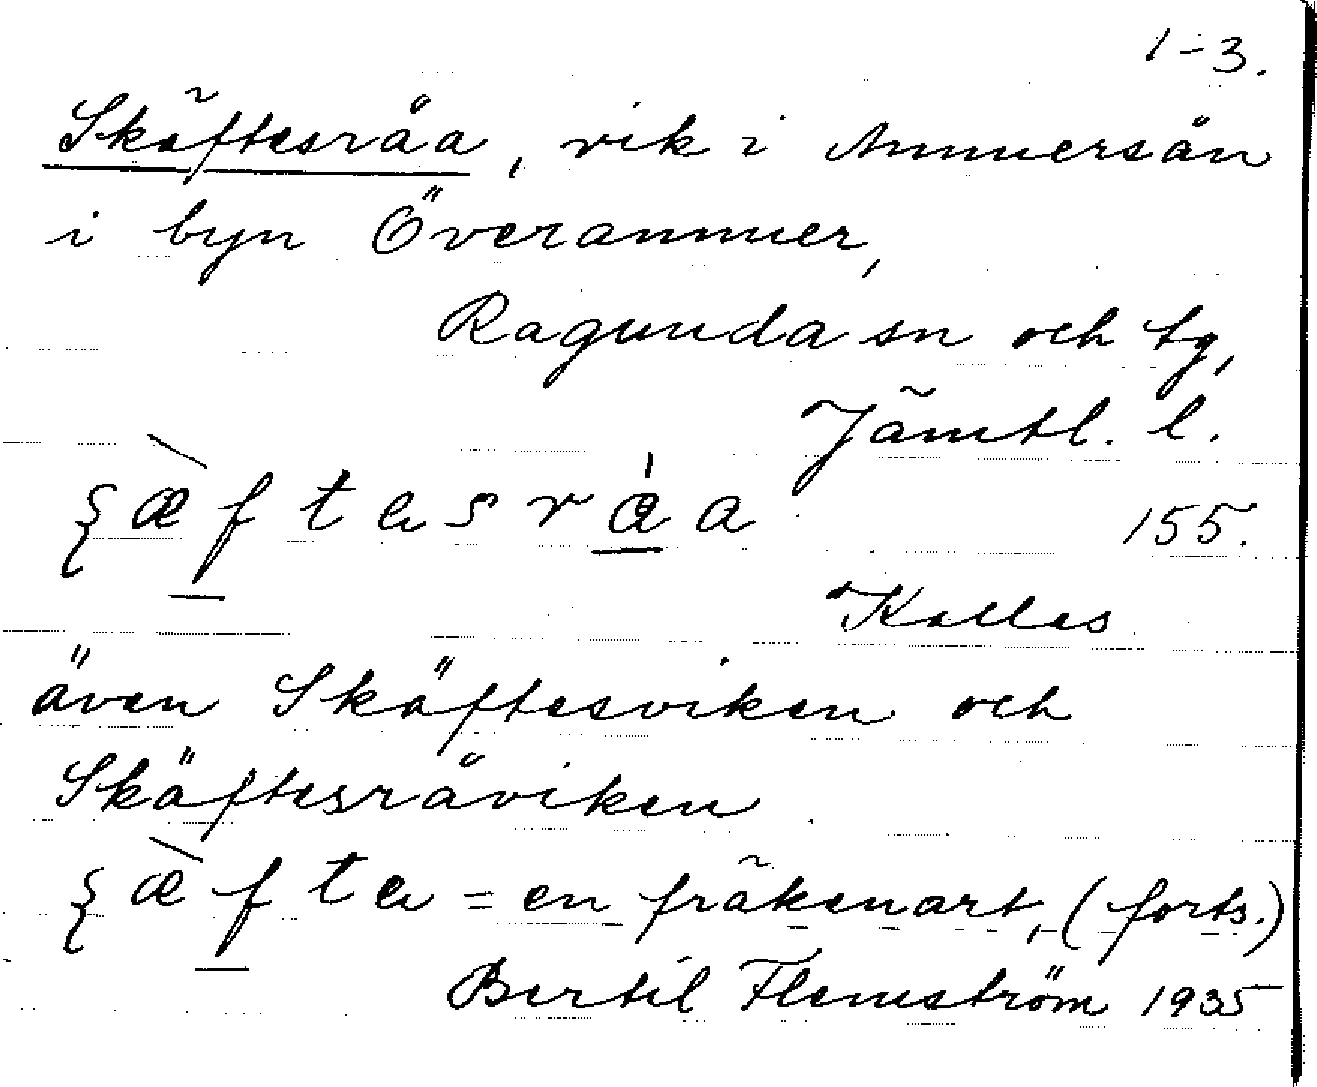 1-3.
Skäftesråa, vik i Ammersån
i byn Överammer,
Ragunda sn och tg,
Jämtl. l.
ʃæ̀ftəsråa 155.
Kallas
även Skäftesviken och
Skäftesråviken
ʃæ̀ftə = en fräkenart, (forts.)
Bertil Flemström 1935